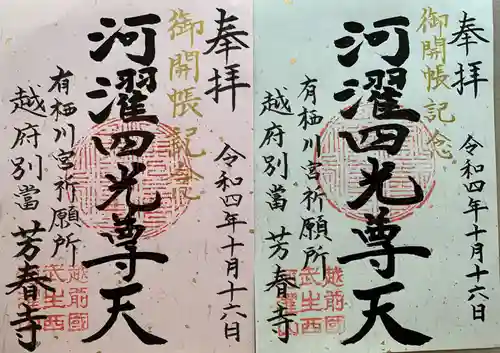 奉拝
令和四年十月十六日
御開帳記念
河濯四光尊天
有栖川宮祈願所
越府別當 芳春寺
越前國
武生西
奉拝
令和四年十月十六日
御開帳記念
河濯四光尊天
有栖川宮祈願所
越府別當 芳春寺
越前國
武生西